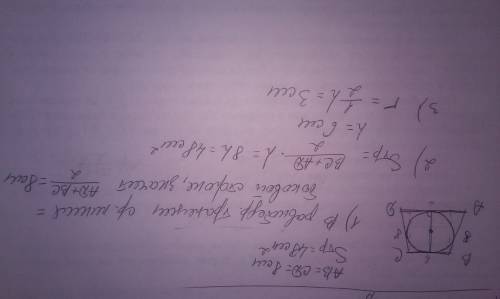 AB = CD = 8 см
Sтр = 48 см²
1) В равнобедр. трапеции ср. линия =
боковой стороне, значит AD+BC/2 = 8 см
2) Sтр = BC+AD/2 · h = 8h = 48 см²
h = 6 см
3) r = 1/2 h = 3 см
B
C
8
8
A
D